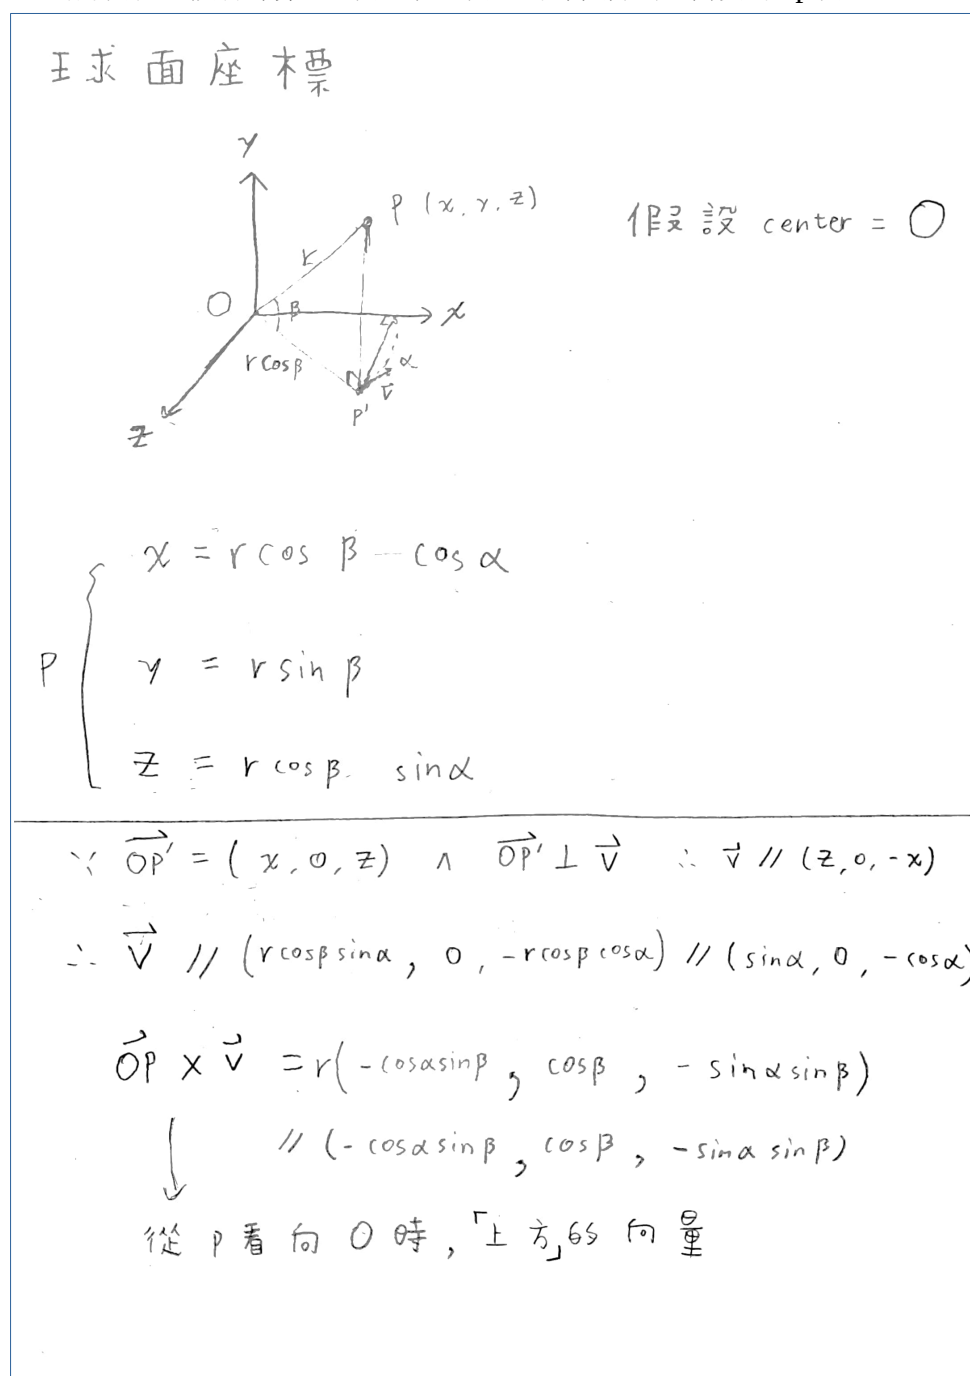 球面座標
y
P (x, y, z)
假設 center = O
r
O
β
x
r cosβ
α
v
P'
z
x = r cos β cos α
P
y = r sin β
z = r cosβ sinα
∵ OP' = (x, 0, z) ∧ OP' ⊥ v ∴ v // (z, 0, -x)
∴ v // (r cosβ sinα, 0, -r cosβ cosα) // (sinα, 0, -cosα)
OP × v = r(-cosα sinβ, cosβ, -sinα sinβ)
// (-cosα sinβ, cosβ, -sinα sinβ)
從 P 看向 O 時,「上方」的向量